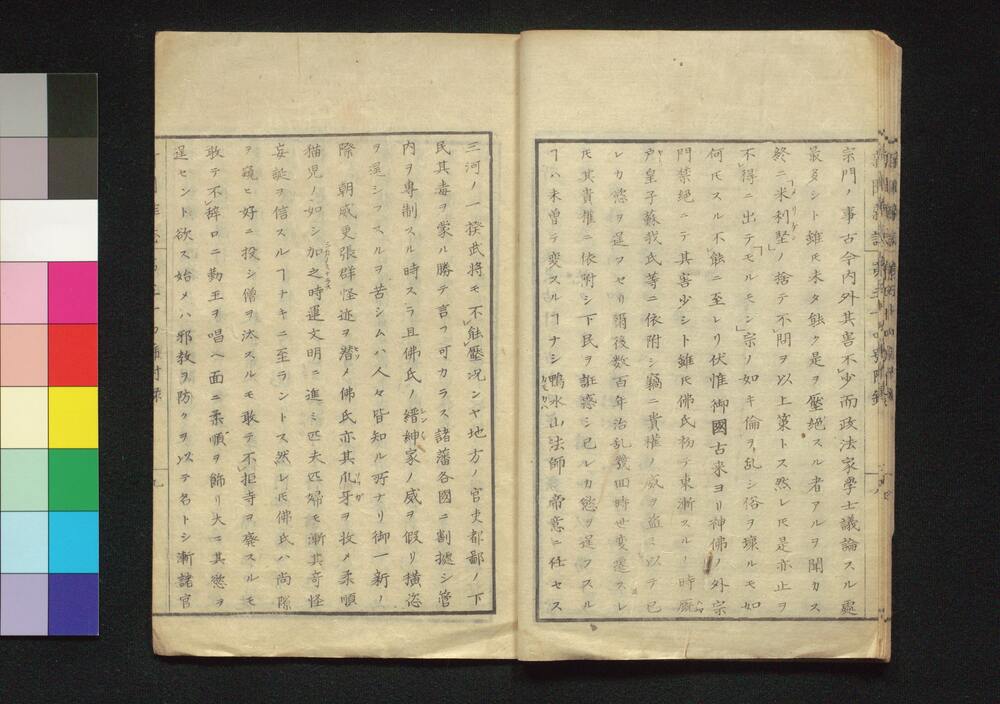 宗門ノ事古今内外其害不少而政法家學士議論スル處
最多シト雖モ未タ能ク是ヲ壓絕スル者アルヲ聞カス
終ニ米利堅ノ捨テ不問ヲ以上策トス然レ𪜈是亦止ヲ
不得ニ出テモルモン宗ノ如キ倫ヲ乱シ俗ヲ壊ルモ如
何𪜈スル不能ニ至レリ伏惟御國古来ヨリ神佛ノ外宗
門禁絕ニテ其害少シト雖𪜈佛氏初テ東漸スルノ時厩
戸皇子蘇我氏等ニ依附シ竊ニ貴權ノ威ヲ盗ミ以テ已
レカ慾ヲ逞フセリ爾後数百年治乱幾回時世変遷スレ
𪜈其貴權ニ依附シ下民ヲ誑惑シ已レカ慾ヲ逞フスル
ヿハ未曽テ変スルヿナシ鴨水山法師ノ帝意ニ任セス
三河ノ一揆武将モ不能壓况ンヤ地方ノ官吏都鄙ノ下
民其毒ヲ蒙ル勝テ言フ可カラス諸藩各國ニ割據シ管
内ヲ專制スル時スラ且佛氏ノ縉紳家ノ威ヲ假リ横恣
ヲ逞シフスルヲ苦シムハ人々皆知ル所ナリ御一新ノ
際　朝威更張群怪迹ヲ潜メ佛氏亦其爪牙ヲ收メ柔順
猫児ノ如シ加之時運文明ニ進ミ匹夫匹婦モ漸其奇怪
妄誕ヲ信スルヿナキニ至ラントス然レ𪜈佛氏ハ尚隙
ヲ窺ヒ好ニ投シ僧ヲ汰スルモ敢テ不拒寺ヲ廃スルモ
敢テ不辞口ニ勤王ヲ唱ヘ面ニ柔順ヲ飾リ大ニ其慾ヲ
逞セント欲ス始メハ邪教ヲ防クヲ以テ名トシ漸諸官